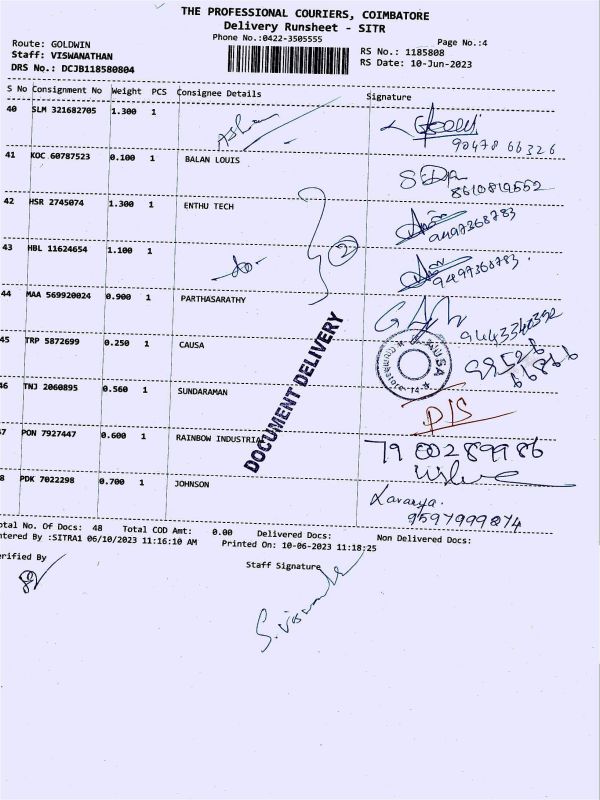 THE PROFESSIONAL COURIERS, COIMBATORE
Delivery Runsheet - SITR
Phone No.:0422-3505555
Page No.:4
Route: GOLDWIN
RS No.: 1185808
Staff: VISWANATHAN
RS Date: 10-Jun-2023
DRS No.: DCJB118580804
S No Consignment No Weight PCS Consignee Details Signature
40 SLM 321682705 1.300 1
90478 66326
41 KOC 60787523 0.100 1 BALAN LOUIS
8610819552
42 HSR 2745074 1.300 1 ENTHU TECH
9497368783
2
43 HBL 11624654 1.100 1
9497368783.
44 MAA 569920024 0.900 1 PARTHASARATHY
45 TRP 5872699 0.250 1 CAUSA
DOCUMENT DELIVERY
46 TNJ 2060895 0.560 1 SUNDARAMAN
D/S
7 PON 7927447 0.600 1 RAINBOW INDUSTRIA
7900289986
8 PDK 7022298 0.700 1 JOHNSON
Lavanya.
9597999874
otal No. Of Docs: 48 Total COD Amt: 0.00 Delivered Docs: Non Delivered Docs:
ntered By :SITRA1 06/10/2023 11:16:10 AM Printed On: 10-06-2023 11:18:25
erified By
Staff Signature